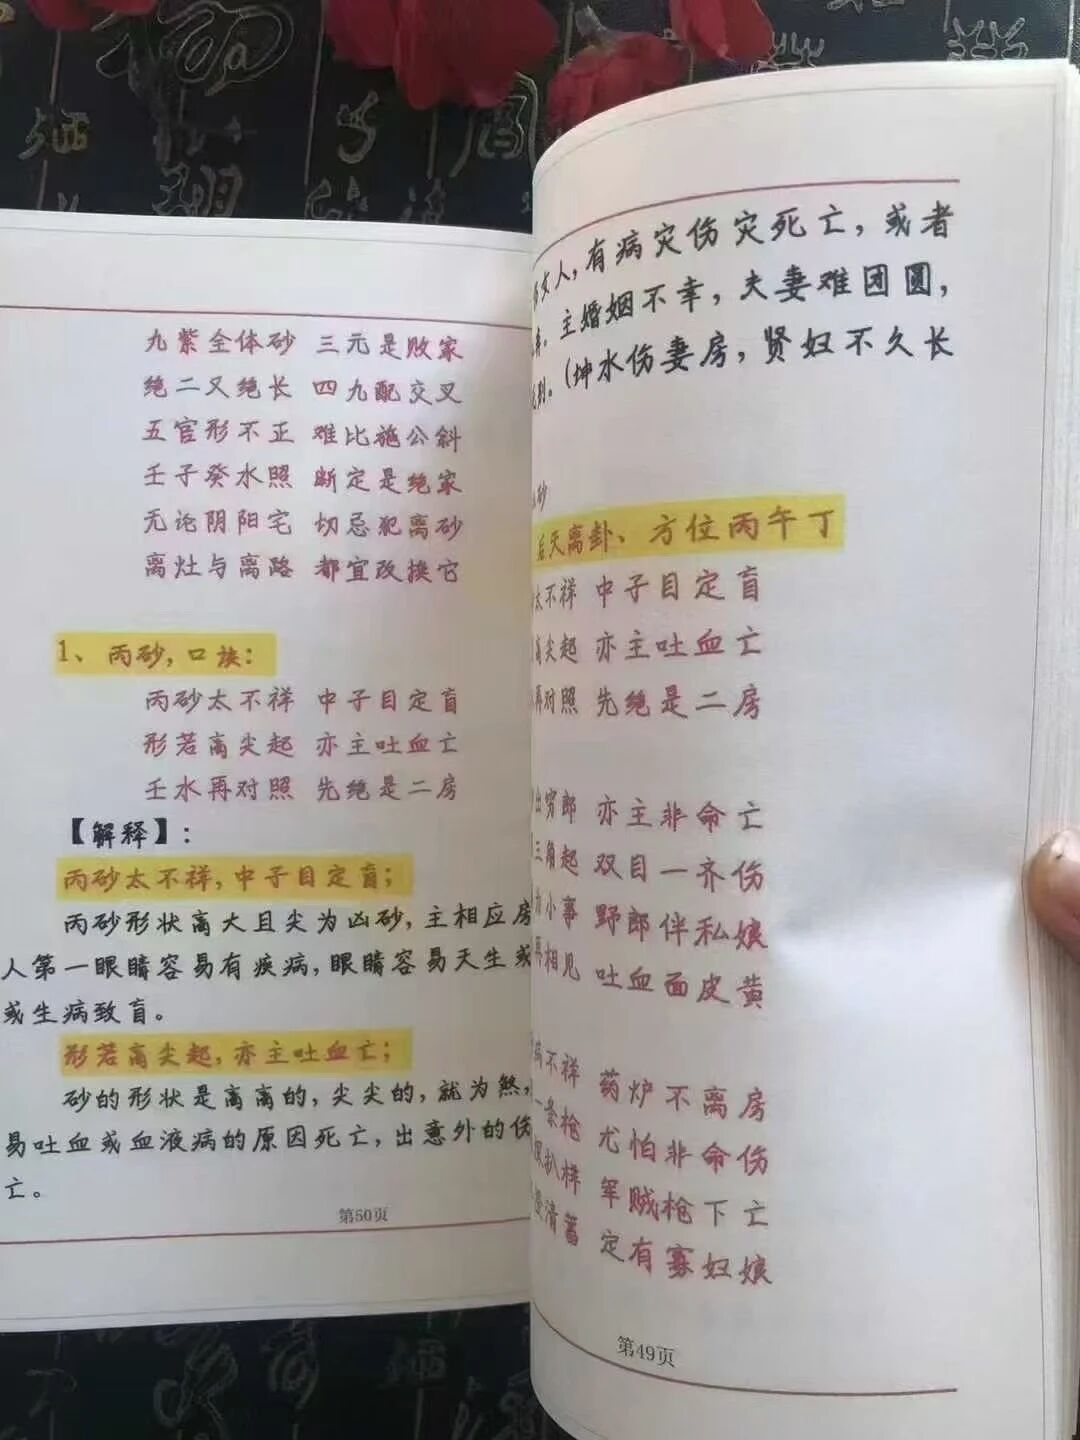 九紫全体砂 三元是败家
绝二又绝长 四九配交叉
五官形不正 难比施公斜
壬子癸水照 断定是绝家
无论阴阳宅 切忌犯离砂
离灶与离路 都宜改换它
1、丙砂，口诀：
丙砂太不祥 中子目定盲
形若高尖起 亦主吐血亡
壬水再对照 先绝是二房
【解释】：
丙砂太不祥，中子目定盲；
丙砂形状高大且尖为凶砂，主相应房
人第一眼睛容易有疾病，眼睛容易天生或
或生病致盲。
形若高尖起，亦主吐血亡；
砂的形状是高高的，尖尖的，就为煞，
易吐血或血液病的原因死亡，出意外的伤
亡。
第50页
女人，有病灾伤灾死亡，或者
弃。主婚姻不幸，夫妻难团圆，
别。（坤水伤妻房，贤妇不久长
砂
后天离卦、方位丙午丁
太不祥 中子目定盲
高尖起 亦主吐血亡
再对照 先绝是二房
出穷郎 亦主非命亡
三角起 双目一齐伤
小事 野郎伴私娘
再相见 吐血面皮黄
病不祥 药炉不离房
一条枪 尤怕非命伤
扒样 军贼枪下亡
清蓄 定有寡妇娘
第49页